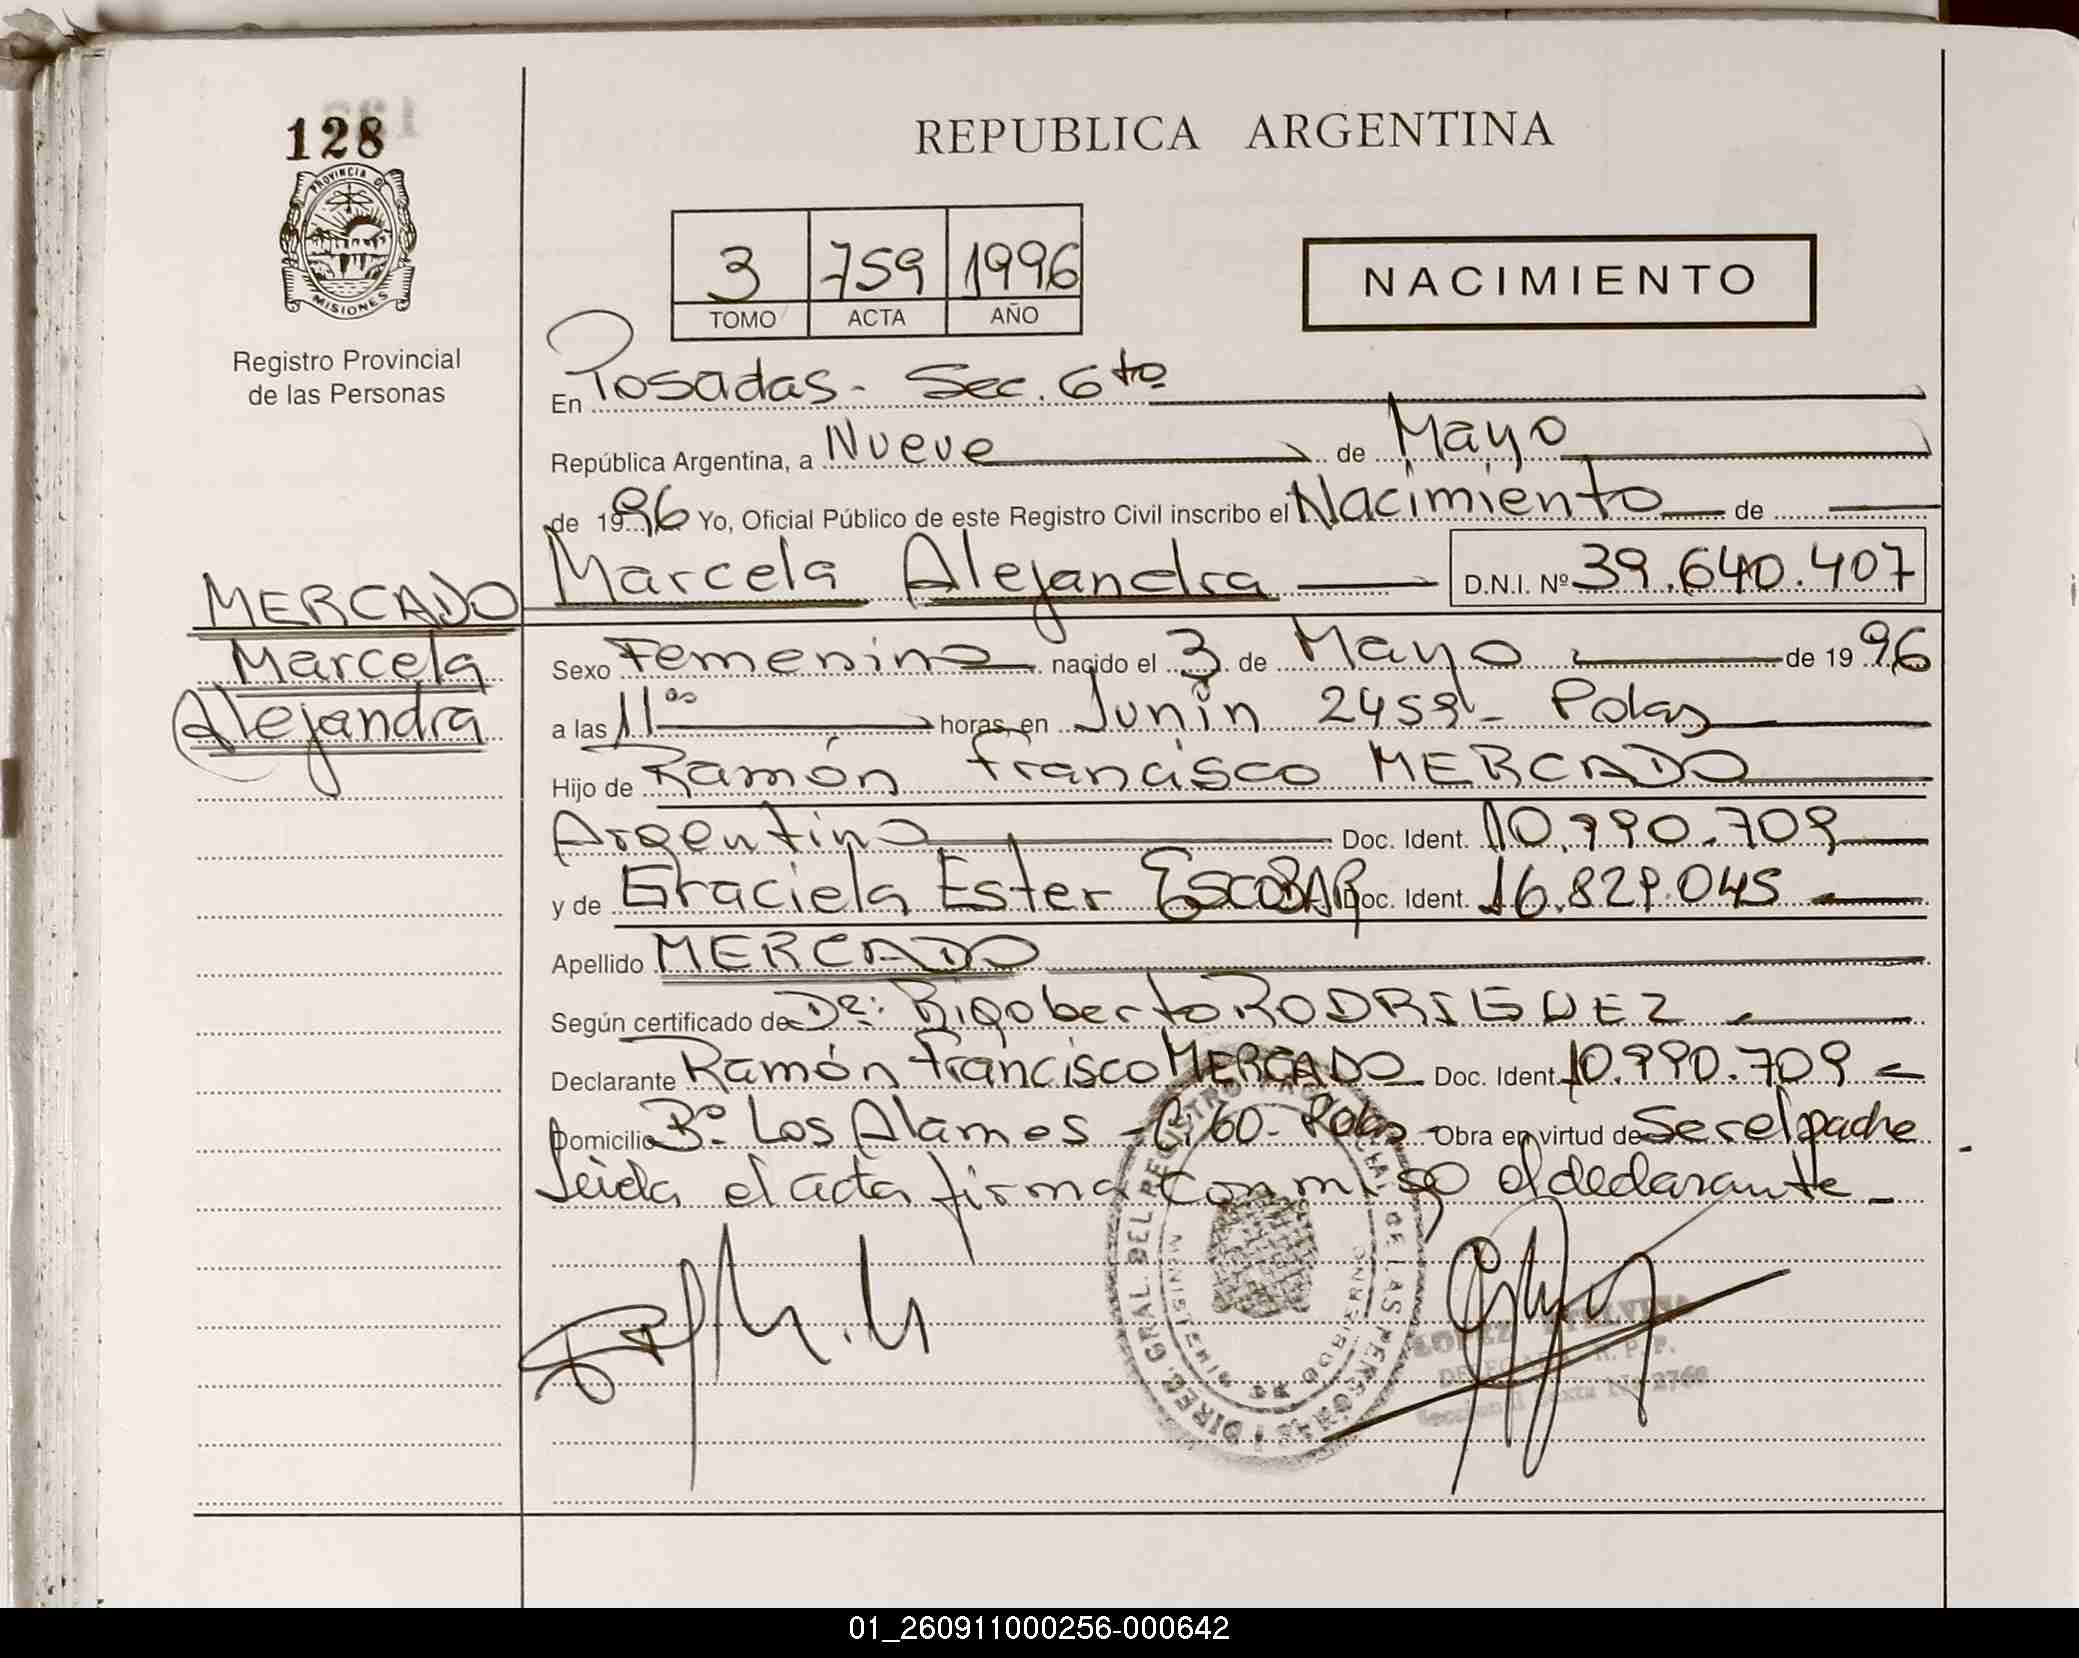 128
PROVINCIA DE
MISIONES
Registro Provincial
de las Personas
REPUBLICA ARGENTINA
3 759 1996
TOMO ACTA AÑO
NACIMIENTO
En Posadas - Sec. 6ta
República Argentina, a Nueve de Mayo
de 1996 Yo, Oficial Público de este Registro Civil inscribo el Nacimiento de
Marcela Alejandra D.N.I. Nº 39.640.407
MERCADO
Marcela
Alejandra
Sexo Femenino nacido el 3 de Mayo de 1996
a las 11 horas en Junín 2459 - Pdas
Hijo de Ramón Francisco MERCADO
Argentino Doc. Ident. 10.990.709
y de Graciela Ester ESCOBAR Doc. Ident. 16.829.045
Apellido MERCADO
Según certificado de Dr: Rigoberto RODRIGUEZ
Declarante Ramón Francisco MERCADO Doc. Ident. 10.990.709
Domicilio Bº Los Alamos - C. 60 - Pdas - Obra en virtud de Ser el padre
Leida el acta firma conmigo el declarante -
DIREC. GRAL. DEL REGISTRO PROVINCIAL DE LAS PERSONAS
MINISTERIO DE GOBIERNO
LOPEZ ETELVINA
DELEGADA R. P. P.
Seccional Sexta
01_260911000256-000642